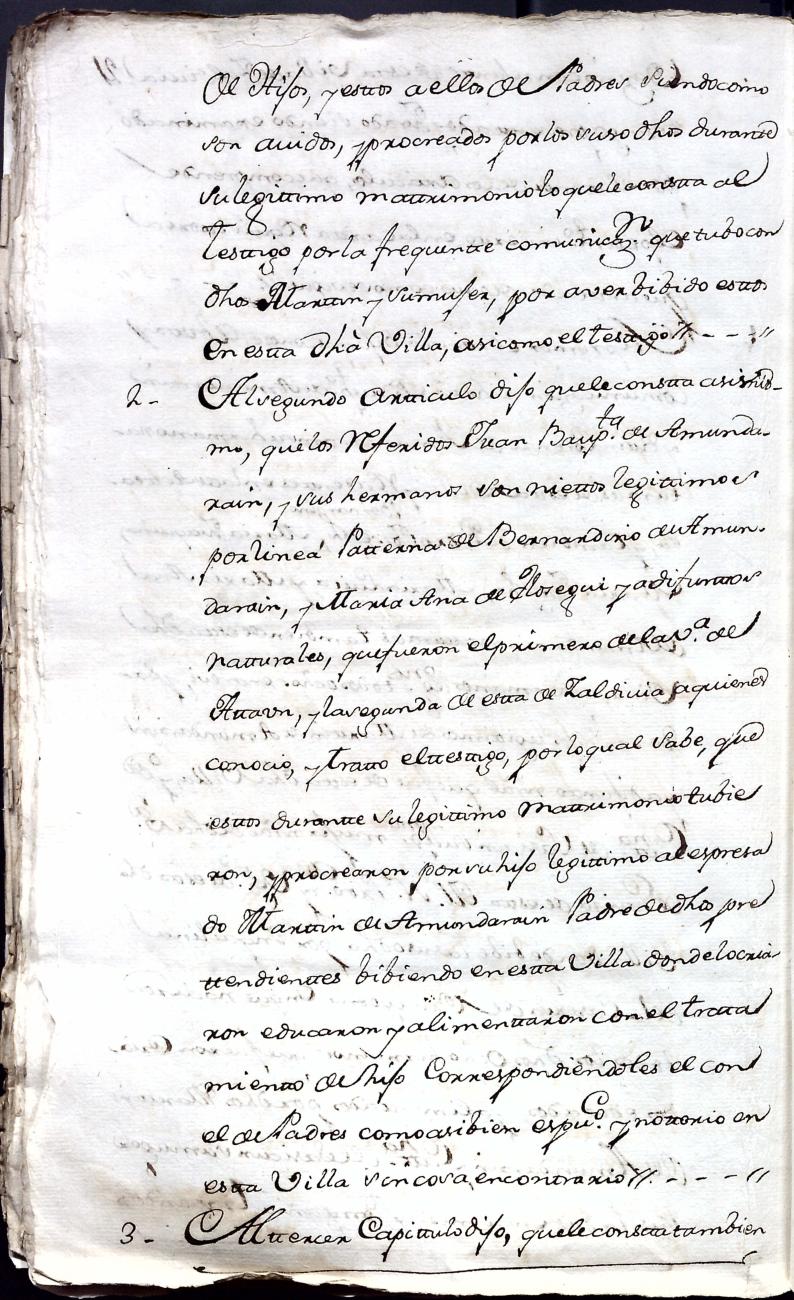 de Hijos, y estos a ellos de Padres siendo como
son auidos, y procreados por los suso dhos durante
su legittimo mattrimonio lo que le constta al
Testtigo por la frequentte comunicaz.n que tubo con
dho Marttin y su mujer, por aver bibido esttos
en estta dhà Villa, asi como el testigo //. - - - //
2 - Al segundo artticulo dijo que le constta asi smis-
mo, que los Referidos Juan Bapp.ta de Amunda-
rain, y sus hermanos son niettos legittimos
por linea Patterna de Bernardino de Amun-
darain, y Maria Ana de Olosegui ya difunttos
natturales, que fueron el primero de la v.a de
Attaun, y la segunda de esta de Zaldiuia a quienes
conocio, y tratto el ttesttigo, por lo qual sabe, que
esttos durantte su legittimo Mattrimonio tubie
ron, y procrearon por su hijo legittimo al espresa
do Marttin de Amundarain Padre de dhos pre
ttendienttes bibiendo en estta Villa donde lo cria
ron educaron y alimenttaron con el tratta
miento de hijo Correspondiendoles el con
el de Padres como asi bien es pu.co y nottorio en
estta Villa sin cosa en contrario //. - - - - //
3 - Al ttercer Capittulo dijo, que le constta tambien